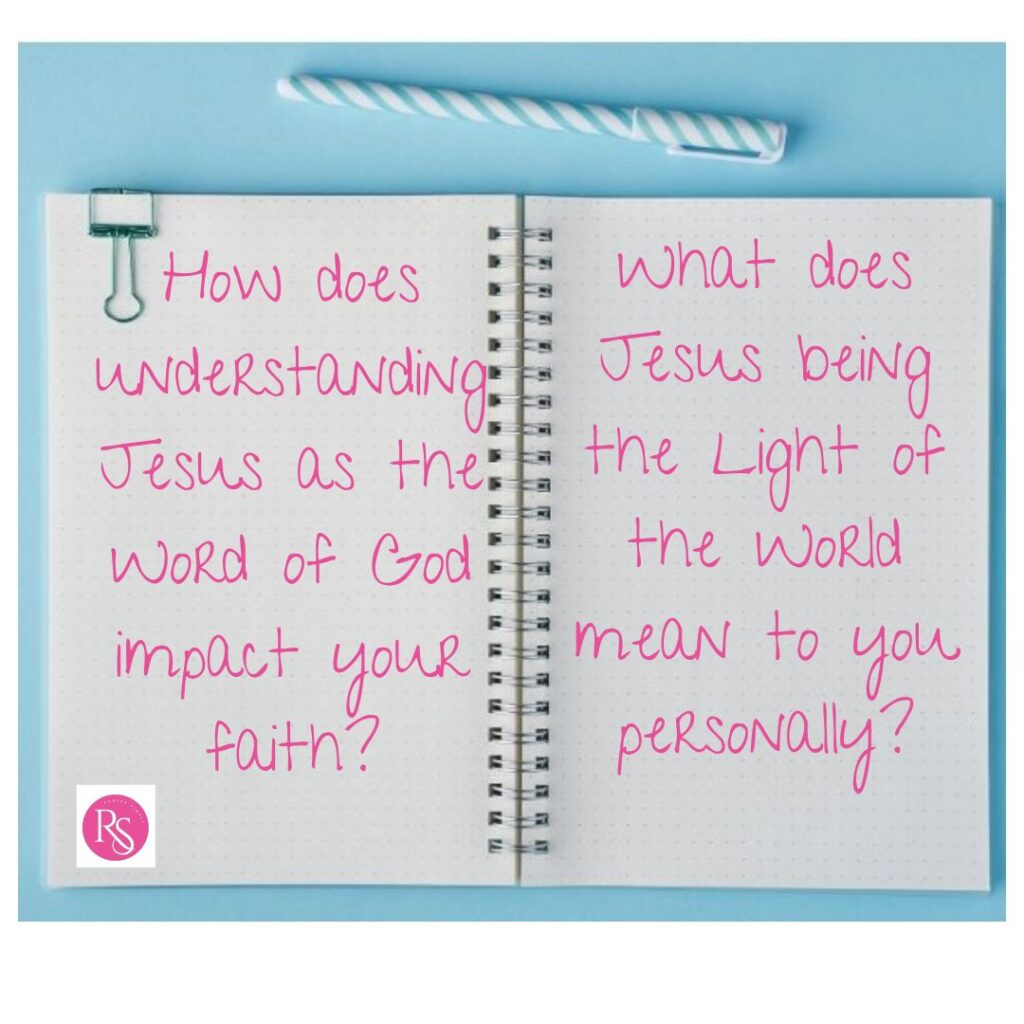 How does
understanding
Jesus as the
Word of God
impact your
faith?
What does
Jesus being
the Light of
the World
mean to you
personally?
RS